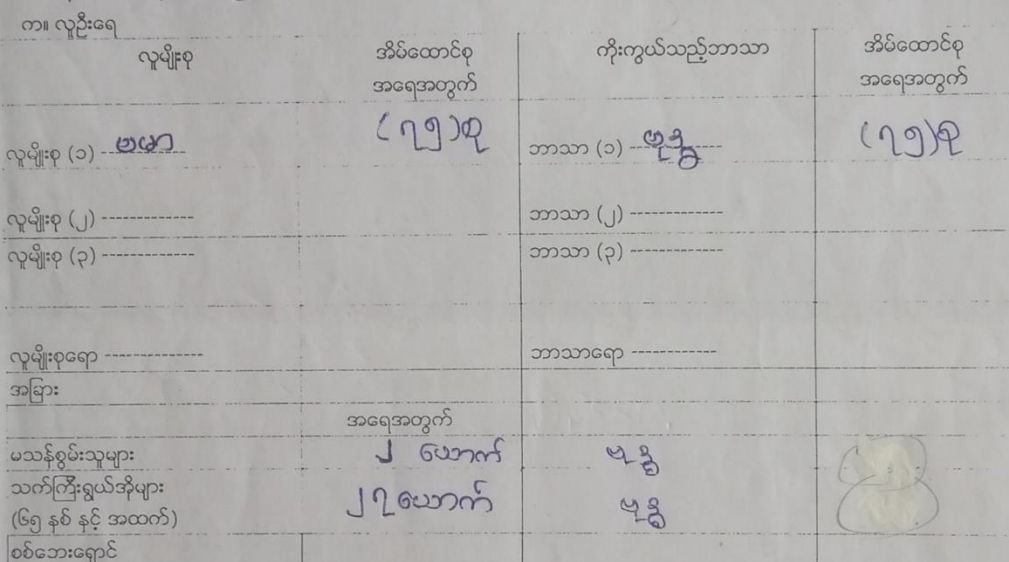 က။ လူဦးရေ
လူမျိုးစု အိမ်ထောင်စု ကိုးကွယ်သည့်ဘာသာ အိမ်ထောင်စု
အရေအတွက် အရေအတွက်
လူမျိုးစု (၁) ဗမာ (၇၅)စု ဘာသာ (၁) ဗုဒ္ဓ (၇၅)စု
လူမျိုးစု (၂) ------------- ဘာသာ (၂) -------------
လူမျိုးစု (၃) ------------- ဘာသာ (၃) -------------
လူမျိုးစုရော -------------- ဘာသာရော ------------
အခြား
အရေအတွက်
မသန်စွမ်းသူများ ၂ ယောက် ဗုဒ္ဓ
သက်ကြီးရွယ်အိုများ ၂၇ယောက် ဗုဒ္ဓ
(၆၅ နှစ် နှင့် အထက်)
စစ်ဘေးရှောင်